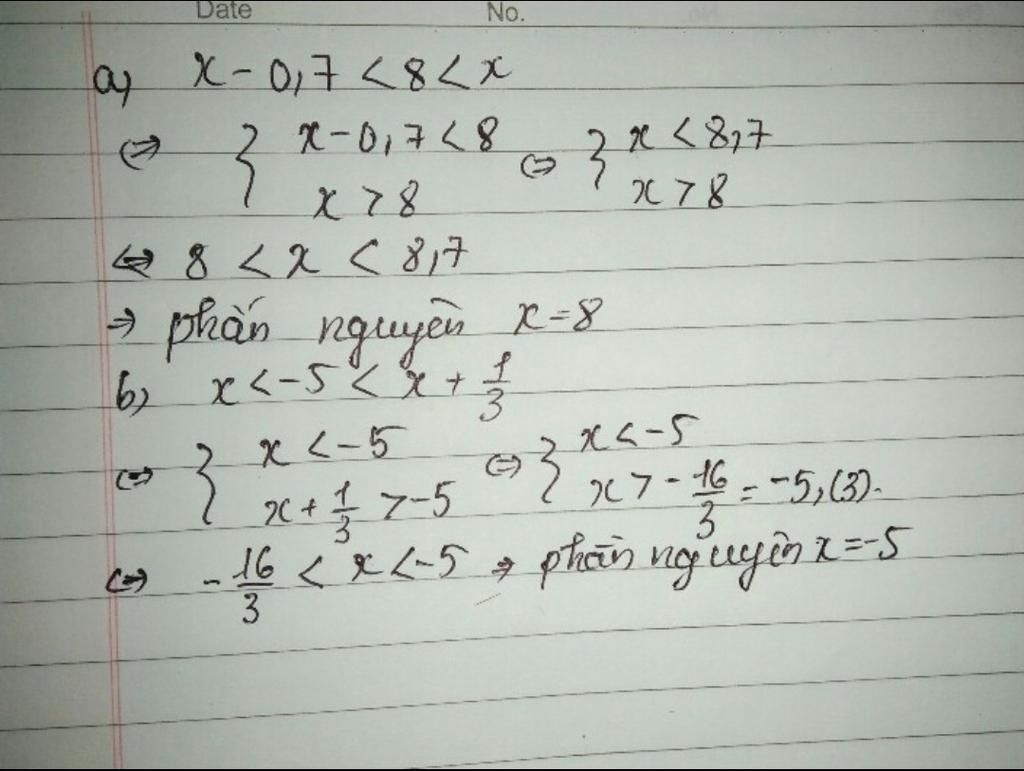 Date No.
a) x - 0,7 < 8 < x
⇔ { x - 0,7 < 8 ⇔ { x < 8,7
x > 8 x > 8
⇔ 8 < x < 8,7
→ phần nguyên x = 8
b) x < -5 < x + 1/3
⇔ { x < -5 ⇔ { x < -5
x + 1/3 > -5 x > -16/3 = -5,(3).
⇔ -16/3 < x < -5 → phần nguyên x = -5